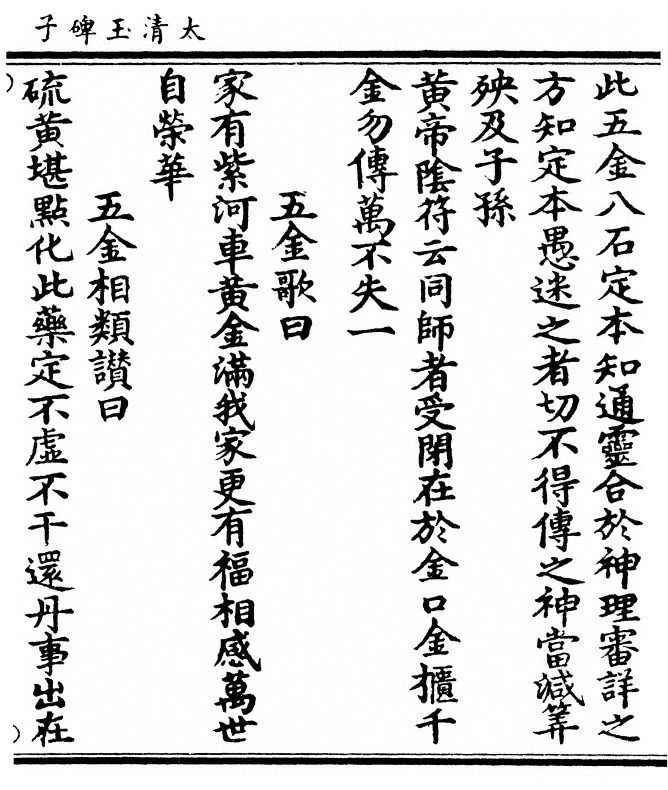 太清玉碑子
此五金八石定本知通靈合於神理審詳之
方知定本愚迷之者切不得傳之神當減筭
殃及子孫
黃帝陰符云同師者受閉在於金口金櫃千
金勿傳萬不失一
五金歌曰
家有紫河車黃金滿我家更有福相感萬世
自榮華
五金相類讃曰
硫黃堪點化此藥定不虛不干還丹事出在